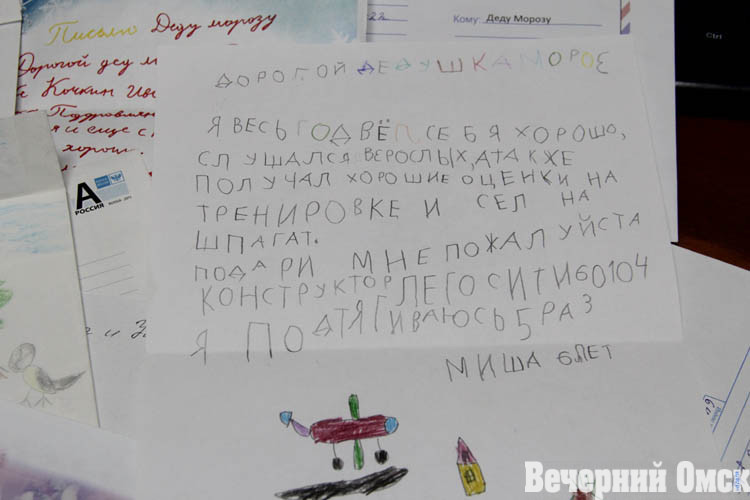 Письмо Деду морозу
Дорогой деду м
Кочкин
и еще с
хорош
22
Кому: Деду Морозу
Ctrl
А
РОССИЯ
ДОРОГОЙ ДЕДУШКА МОРОЕ
Я ВЕСЬ ГОД ВЁЛ СЕБЯ ХОРОШО,
СЛУШАЛСЯ ВЕРОСЛЫХ, АТАКЖЕ
ПОЛУЧАЛ ХОРОШИЕ ОЦЕНКИ НА
ТРЕНИРОВКЕ И СЕЛ НА
ШПАГАТ.
ПОДАРИ МНЕ ПОЖАЛУЙСТА
КОНСТРУКТОР ЛЕГО СИТИ 60104
Я ПОДТЯГИВАЮСЬ 5 РАЗ
МИША 6 ЛЕТ
Вечерний Омск